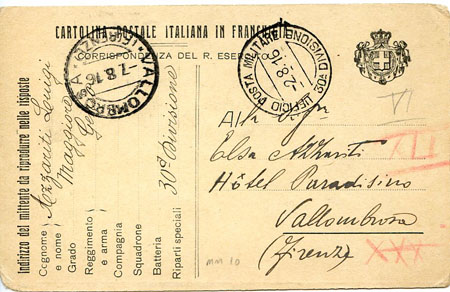 CARTOLINA POSTALE ITALIANA IN FRANCHIGIA
CORRISPONDENZA DEL R. ESERCITO
VALLOMBROSA (FIRENZE)
-7.8.16
UFFICIO POSTA MILITARE
30A DIVISIONE
-2.8.16
Indirizzo del mittente da riprodurre nelle risposte
Cognome e nome Azzariti Luigi
Grado Maggiore
Reggimento e arma
Compagnia
Squadrone
Batteria
Riparti speciali 30a Divisione
Alla Sigra
Elsa Azzariti
Hôtel Paradisino
Vallombrosa
(Firenze)
VI
XXX
mm 10